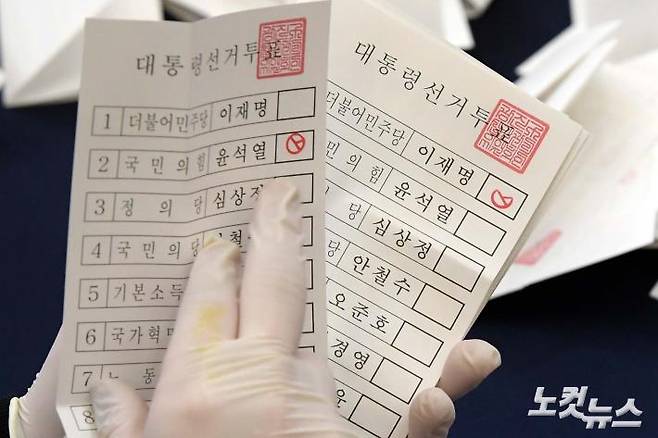 대통령선거투표
1 더불어민주당 이재명
2 국민의힘 윤석열
3 정의당 심상정
4 국민의당
5 기본소득
6 국가혁
7 노동
8
대통령선거투표
더불어민주당 이재명
민의힘 윤석열
당 심상정
당 안철수
오준호
경영
노컷뉴스